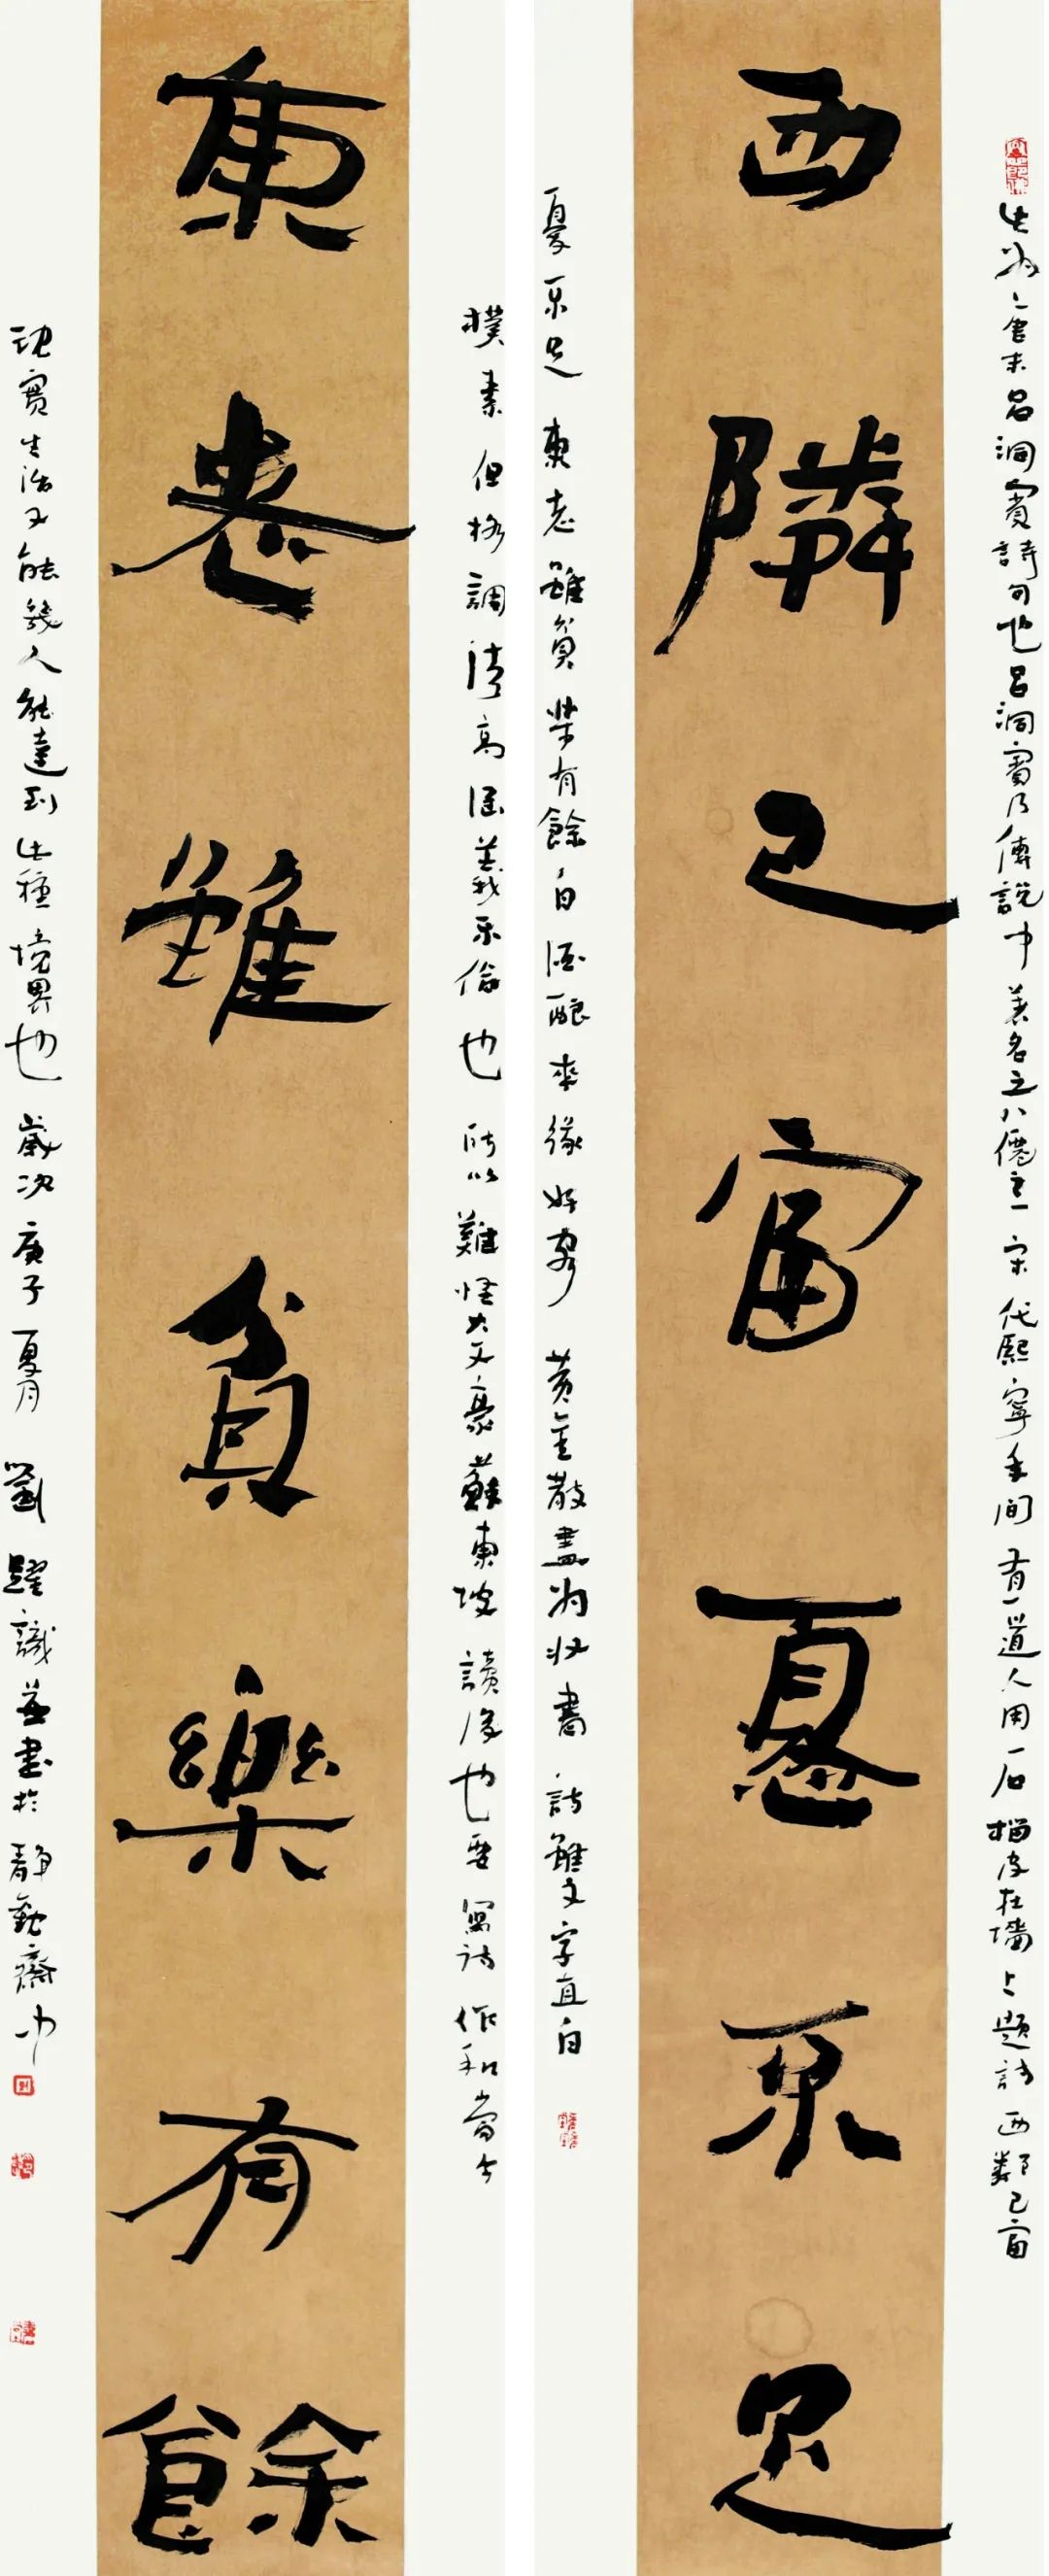 西隣已富憂不足
東老雖貧樂有餘
此为唐末呂洞賓詩句也呂洞賓乃傳說中著名之八僊之一宋代熙寧年间有一道人用一石榴皮在墻上題詩西鄰已富
憂不足東老雖貧樂有餘白酒釀來缘好客黄金散盡为收書詩雖文字直白
樸素但格調清高涵義不俗也所以難怪大文豪蘇東坡讀後也要寫詩作和當今
現實生活又能幾人能達到此種境界也歲次庚子夏月劉躍識並書於靜觀齋中